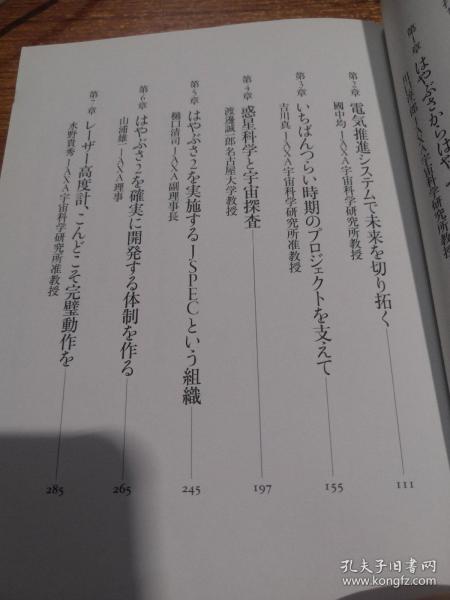 第1章
はやぶさからはや
川口淳一郎 JAXA宇宙科学研究所教授
第2章
電気推進システムで未来を切り拓く
國中均 JAXA宇宙科学研究所教授
111
第3章
いちばんつらい時期のプロジェクトを支えて
吉川真 JAXA宇宙科学研究所准教授
155
第4章
惑星科学と宇宙探査
渡邊誠一郎 名古屋大学教授
197
第5章
はやぶさ2を実施するJSPECという組織
樋口清司 JAXA副理事長
245
第6章
はやぶさ2を確実に開発する体制を作る
山浦雄一 JAXA理事
265
第7章
レーザー高度計、こんどこそ完璧動作を
水野貴秀 JAXA宇宙科学研究所准教授
285
孔夫子旧书网
www.kongfz.com